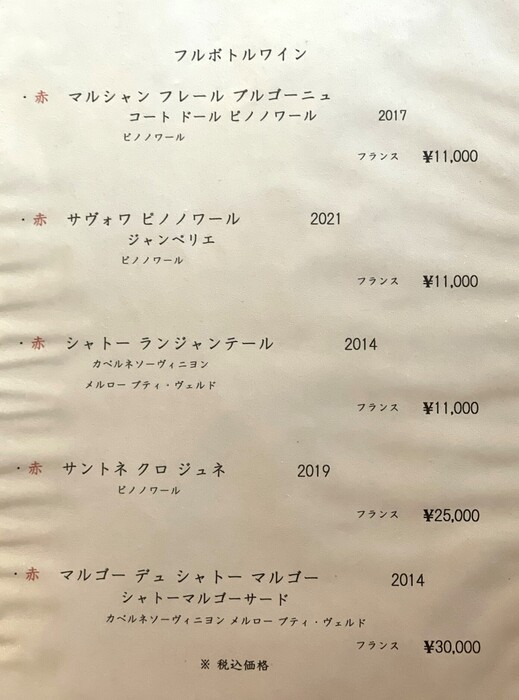 フルボトルワイン
・赤 マルシャン フレール ブルゴーニュ
コート ドール ピノノワール 2017
ピノノワール
フランス ¥11,000
・赤 サヴォワ ピノノワール 2021
ジャンペリエ
ピノノワール
フランス ¥11,000
・赤 シャトー ランジャンテール 2014
カベルネソーヴィニヨン
メルロー プティ・ヴェルド
フランス ¥11,000
・赤 サントネ クロ ジュネ 2019
ピノノワール
フランス ¥25,000
・赤 マルゴー デュ シャトー マルゴー 2014
シャトーマルゴーサード
カベルネソーヴィニヨン メルロー プティ・ヴェルド
フランス ¥30,000
※ 税込価格